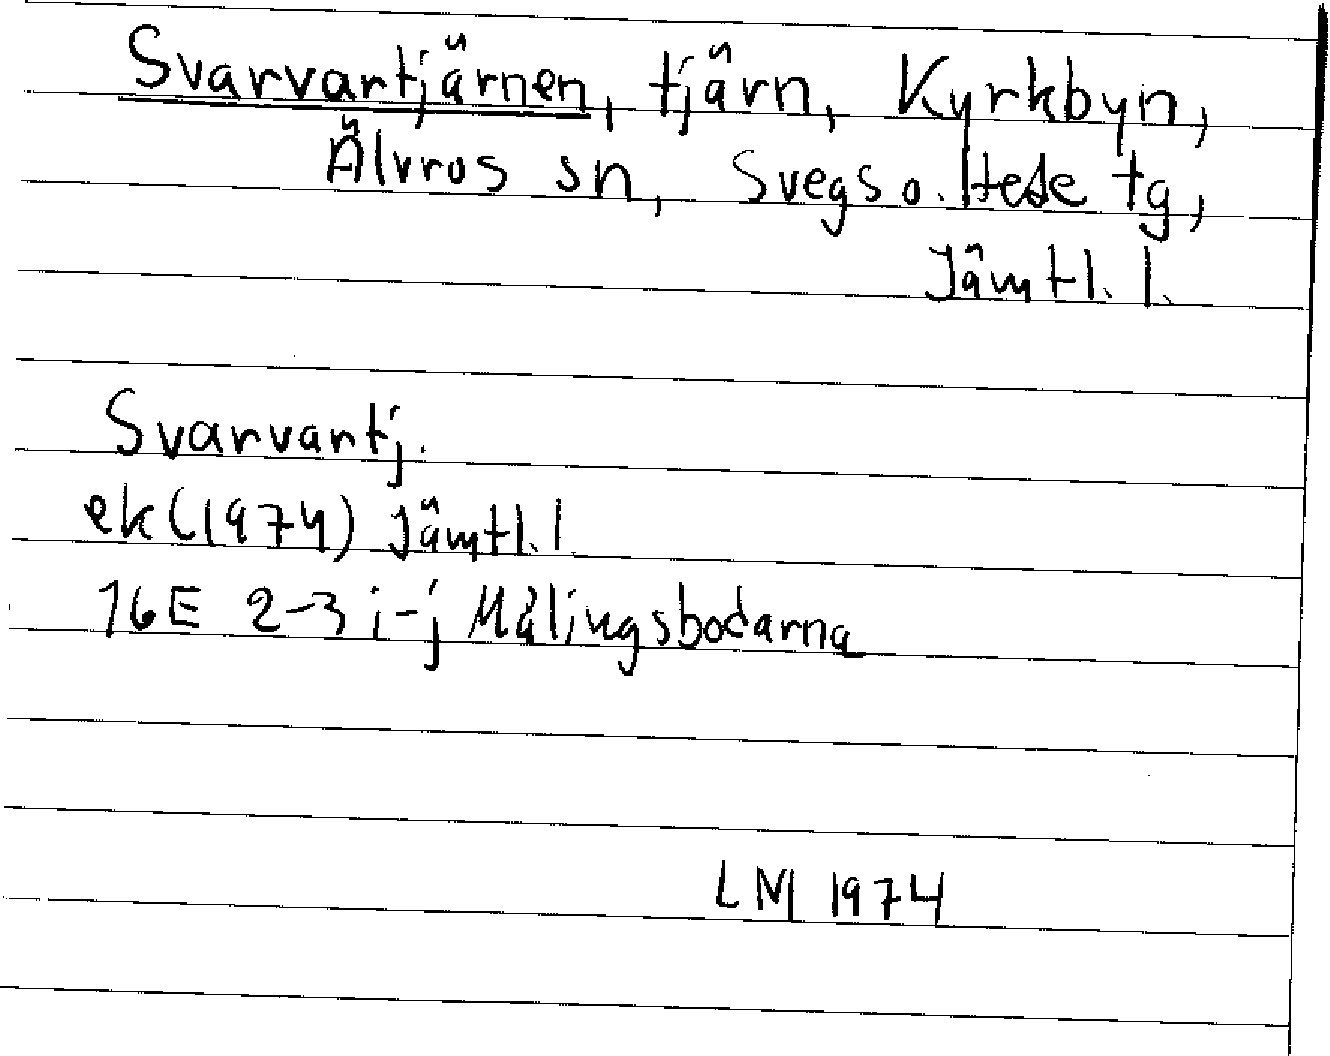 Svarvartjärnen, tjärn, Kyrkbyn,
Älvros sn, Svegs o. Hede tg,
Jämtl. l.
Svarvartj.
ek (1974) Jämtl. l
16E 2-3 i-j Målingsbodarna
LNJ 1974